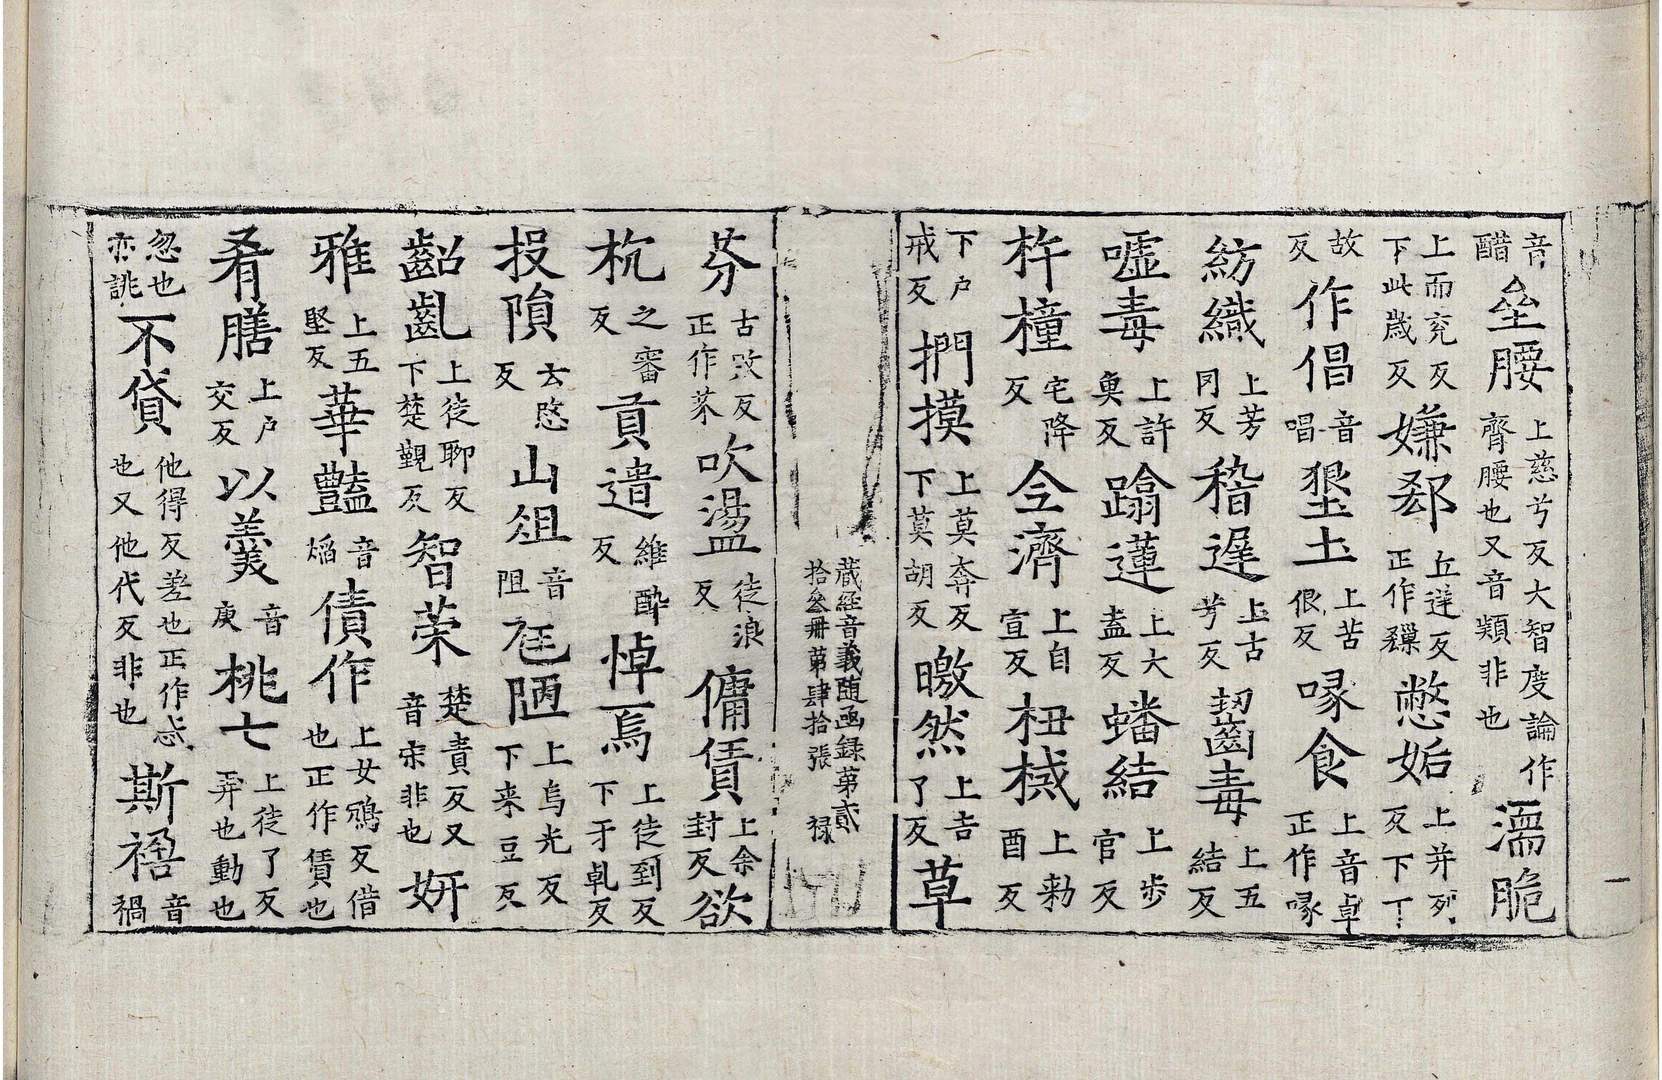 音醋垒腰上慈兮反大智度論作齊腰也又音類非也濡脆
上而兖反下此歲反嫌郄丘逆反正作憋妬上并列反下丁
故反作倡音唱墾土上苦佷反喙食上音卓正作啄
紡織上芳罔反稽遲上古兮反齧毒上五結反
嘘毒上許魚反蹹蓮上大盍反蟠結上步官反
杵橦宅降反全濟上自宣反杻械上勑酉反
下户戒反捫摸上莫奔反下莫胡反曒然上吉了反草
藏經音義随函録第貳拾叁册第肆拾張 禄
芥古敗反正作芥吹盪徒浪反傭賃上余封反欲
枕之審反貢遺維酔反悼焉上徒到反下于乹反
投隕云愍反山俎音阻尫陋上烏光反下来豆反
齠齓上徒聊反下楚覲反智荣楚責反又音宋非也妍
雅上五堅反華豔音焰債作上女鴆反借也正作賃也
肴膳上户交反以羹音庚挑七上徒了反弄也動也
忽也亦誂不貸他得反差也正作忒也又他代反非也斯音禍